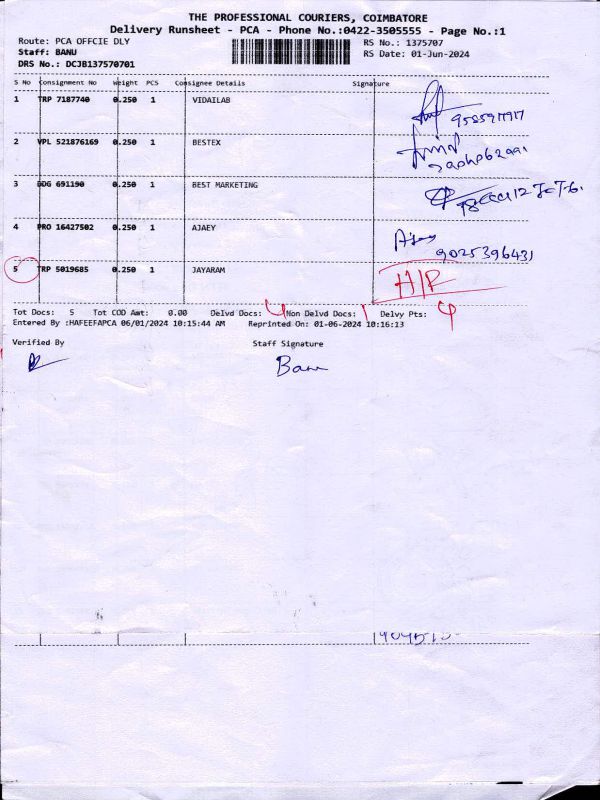 THE PROFESSIONAL COURIERS, COIMBATORE
Delivery Runsheet - PCA - Phone No.:0422-3505555 - Page No.:1
Route: PCA OFFCIE DLY RS No.: 1375707
Staff: BANU RS Date: 01-Jun-2024
DRS No.: DCJB137570701
S No Consignment No Weight PCS Consignee Details Signature
1 TRP 7187740 0.250 1 VIDAILAB
2 VPL 521876169 0.250 1 BESTEX
3 DDG 691190 0.250 1 BEST MARKETING
4 PRO 16427502 0.250 1 AJAEY
9025396431
5 TRP 5019685 0.250 1 JAYARAM H/R
Tot Docs: 5 Tot COD Amt: 0.00 Delvd Docs: 4 Non Delvd Docs: 1 Delvy Pts: 4
Entered By :HAFEEFAPCA 06/01/2024 10:15:44 AM Reprinted On: 01-06-2024 10:16:13
Verified By Staff Signature
Banu